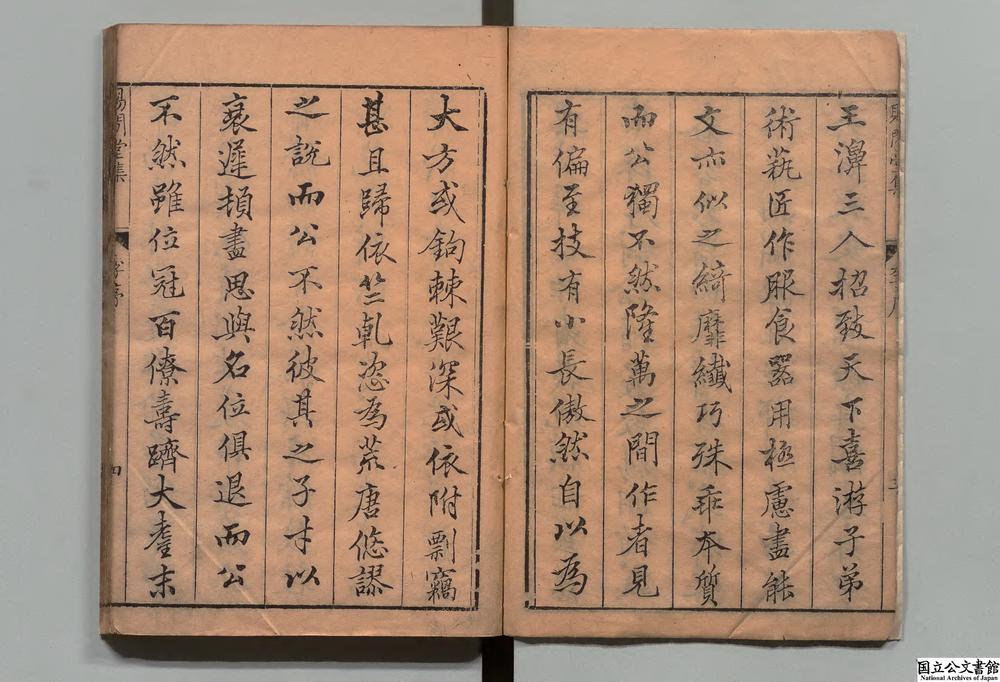 王濞三人招致天下喜游子弟
術蓺匠作服食器用極慮盡能
文亦似之綺靡纖巧殊乖本質
而公獨不然隆萬之間作者見
有偏至技有小長傲然自以為
大方或鉤棘艱深或依附剽竊
甚且歸依竺乹恣為荒唐悠謬
之說而公不然彼其之子才以
衰遲頓盡思與名位俱退而公
不然雖位冠百僚壽躋大耋末
賜閒堂集
四
国立公文書館
National Archives of Japan